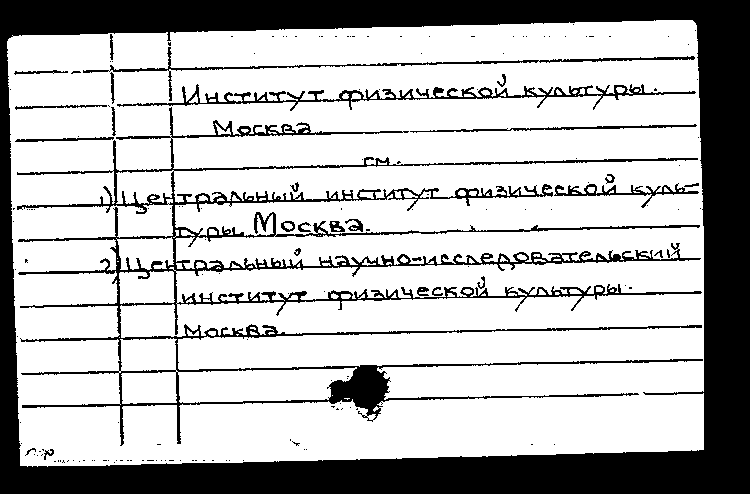 Институт физической культуры.
Москва
см.
1) Центральный институт физической куль-
туры. Москва.
2) Центральный научно-исследовательский
институт физической культуры.
Москва.